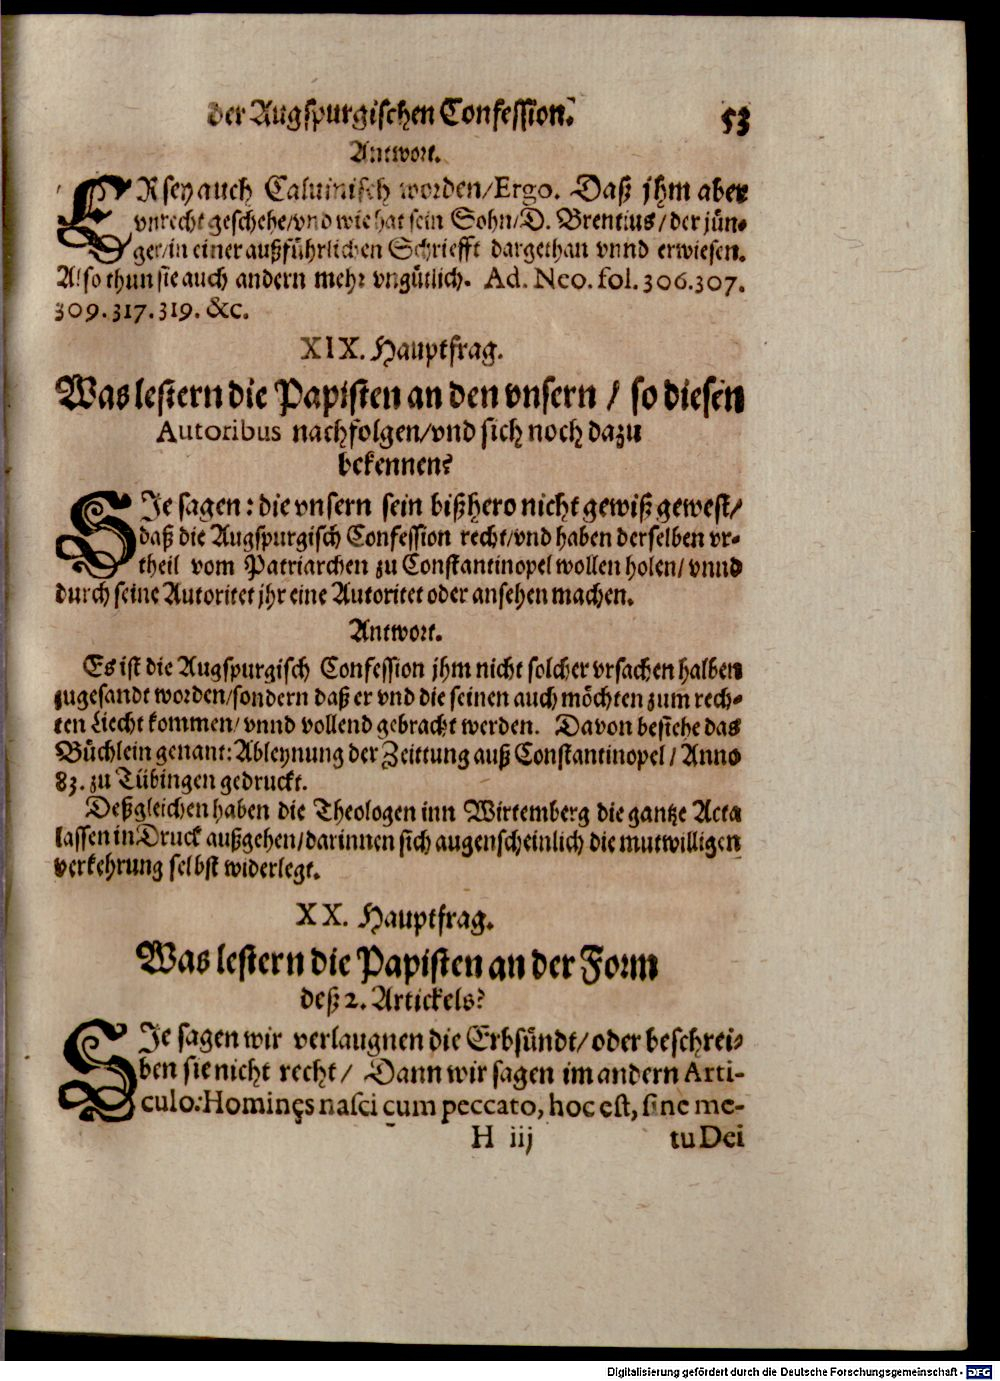 der Augspurgischen Confession. 53
Antwort.
ER sey auch Caluinisch worden/Ergo. Daß jhm aber
vnrecht geschehe/vnd wie hat sein Sohn/D. Brentius/der jün-
ger/in einer außführlichen Schriefft dargethan vnnd erwiesen.
Also thun sie auch andern mehr vngütlich. Ad. Neo. fol. 306.307.
309.317.319. &c.
XIX. Hauptfrag.
Was lestern die Papisten an den vnsern / so diesen
Autoribus nachfolgen/vnd sich noch dazu
bekennen?
SJe sagen: die vnsern sein bißhero nicht gewiß gewest/
daß die Augspurgisch Confession recht/vnd haben derselben vr-
theil vom Patriarchen zu Constantinopel wollen holen/ vnnd
durch seine Autoritet jhr eine Autoritet oder ansehen machen.
Antwort.
Es ist die Augspurgisch Confession jhm nicht solcher vrsachen halben
zugesandt worden/sondern daß er vnd die seinen auch möchten zum rech-
ten Liecht kommen/ vnnd vollend gebracht werden. Davon bestehe das
Büchlein genant: Ableynung der Zeittung auß Constantinopel / Anno
83. zu Tübingen gedruckt.
Deßgleichen haben die Theologen inn Wirtemberg die gantze Acta
lassen in Druck außgehen/darinnen sich augenscheinlich die mutwilligen
verkehrung selbst widerlegt.
XX. Hauptfrag.
Was lestern die Papisten an der Form
deß 2. Artickels?
SJe sagen wir verlaugnen die Erbsündt/oder beschrei-
ben sie nicht recht/ Dann wir sagen im andern Arti-
culo: Homines nasci cum peccato, hoc est, sine me-
H iij tu Dei
Digitalisierung gefördert durch die Deutsche Forschungsgemeinschaft - DFG